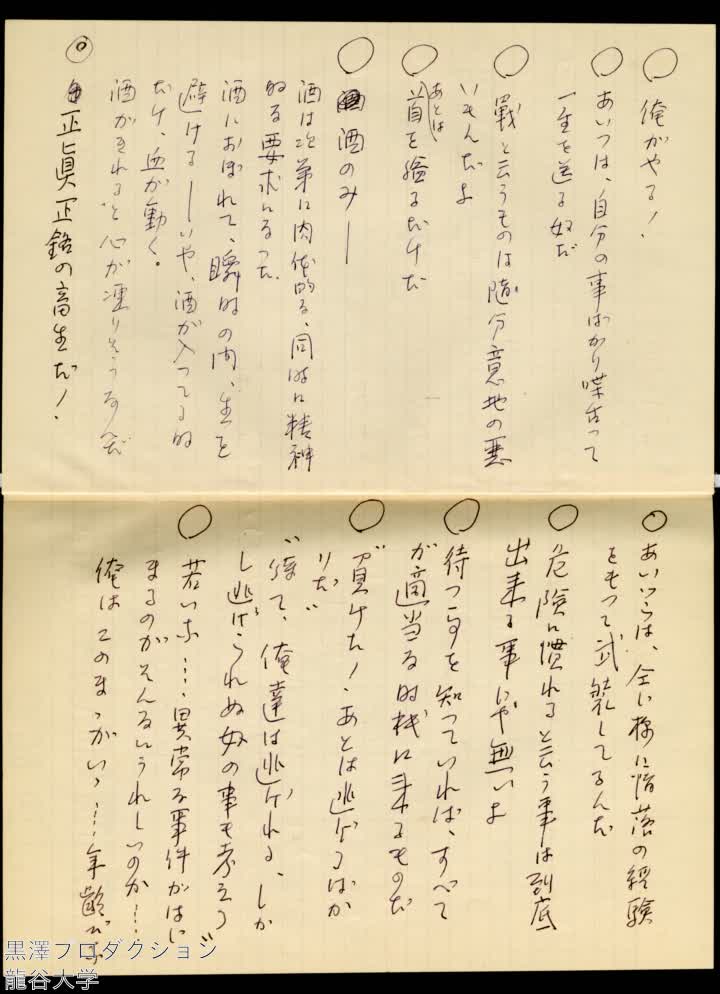 ○ 俺がやる!
○ あいつは、自分の事ばかり喋舌って
一生を送る奴だ
○ 戦と云うものは随分意地の悪
いもんだよ
○ あとは
首を縊るだけだ
○ 酒のみ——
酒は次第に肉体的な、同時に精神
的な要求になった
酒におぼれて、瞬時の間、生を
避ける——いや、酒が入ってる時
だけ、血が動く。
酒がきれると心が凍りそうなんだ
○ 正真正銘の畜生だ!
○ あいつらは、全い様に堕落の経験
をもって武装してるんだ
○ 危険に慣れると云う事は到底
出来る事じゃ無いよ
○ 待つ事を知っていれば、すべて
が適当な時機に来るものだ
○ "負けた!あとは逃げるばか
りだ"
"待て、俺達は逃げれる、しか
し逃げられぬ奴の事も考えろ"
○ 若い奴……異常な事件がはじ
まるのがそんなにうれしいのか……
俺はこのまゝがいゝ……年齢だな
黒澤プロダクション
龍谷大学